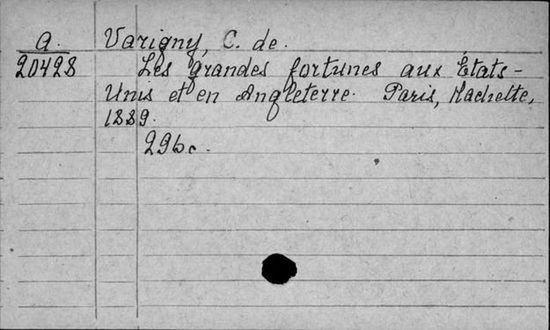 A. Varigny, C. de.
20428 Les grandes fortunes aux États-
Unis et en Angleterre. Paris, Hachette,
1889.
296 c.